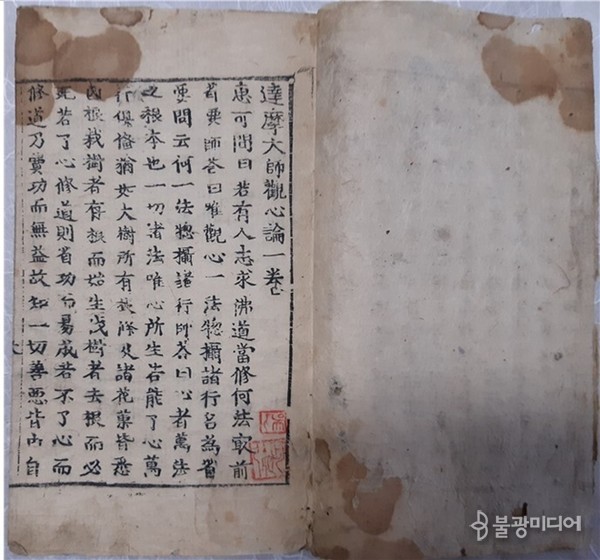 達摩大師觀心論一卷
惠可問曰若有人志求佛道當修何法㝡前
省要師荅曰唯觀心一法惣攝諸行名為省
要問云何一法惣攝諸行師荅曰心者萬法
之根本也一切諸法唯心所生若能了心萬
行俱俻猶如大樹所有枝條及諸花菓皆悉
因根栽樹者存根而始生伐樹者去根而必
死若了心修道則省功而易成若不了心而
修道乃費功而無益故知一切善惡皆由自
불광미디어